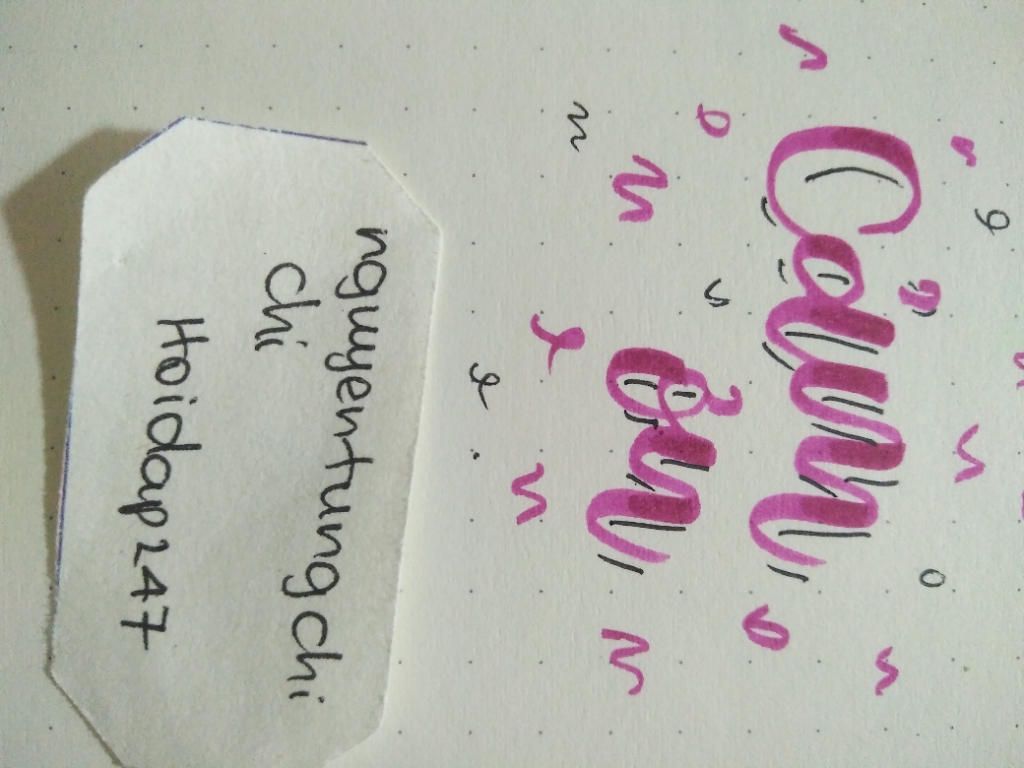 Cảm
ơn
nguyentungchi
chi
Hoidap247